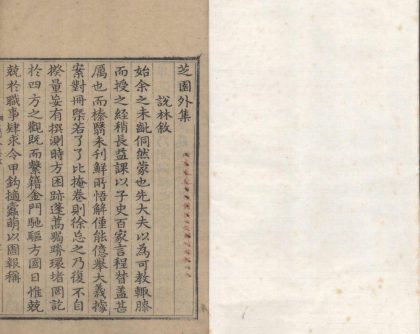 芝園外集
說林敘
始余之未齔侗然蒙也先大夫以為可教輒膝
而授之經稍長益課以子史百家言程督蓋甚
厲也而榛翳未刊鮮所悟解僅能億舉大義據
案對冊槩若了了比掩卷則徐忘之乃復不自
揆量妄有撰測時方困跡蓬蒿獨齊環堵罔託
於四方之觀既而繫籍金門馳驅方國日惟兢
兢於職事肆求令甲鈎擿蠹萌以圖報稱